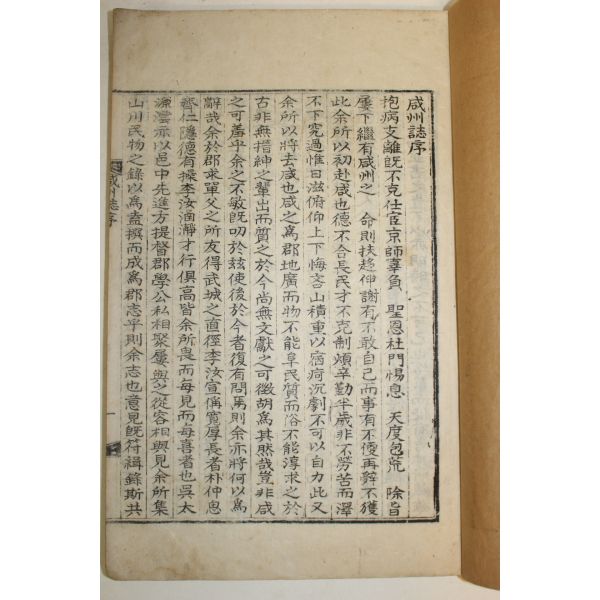 咸州誌序
抱病支離旣不克仕宦京師辜負 聖恩杜門惕息 天度包荒 除旨
屢下繼有咸州之 命則扶趍伸謝有不敢自已而事有不便再辭不獲
此余所以初赴咸也德不合長民才不克制煩辛勤半歲非不勞苦而澤
不下究過惟日滋俯仰上下悔吝山積重以宿痾沉劇不可以自力此又
余所以將去咸也咸之爲郡地廣而物不能阜民質而俗不能淳求之於
古非無搢紳之輩出而質之於今尚無文獻之可徵胡爲其然哉豈非咸
之可羞乎余之不敏旣叨於玆使後於今者復有問焉則余亦將何以爲
辭哉余於郡求單父之所友得武城之直徑李汝宣偁寬厚長者朴仲思
齊仁隱德有操李汝涵瀞才行俱高皆余所畏而每見而每喜者也吳太
源澐亦以邑中先進方提督郡學公私相聚屢與之從容相與見余所集
山川民物之錄以爲盍撰而成爲郡志乎則余志也意見旣符緝錄斯共
咸州誌序
一